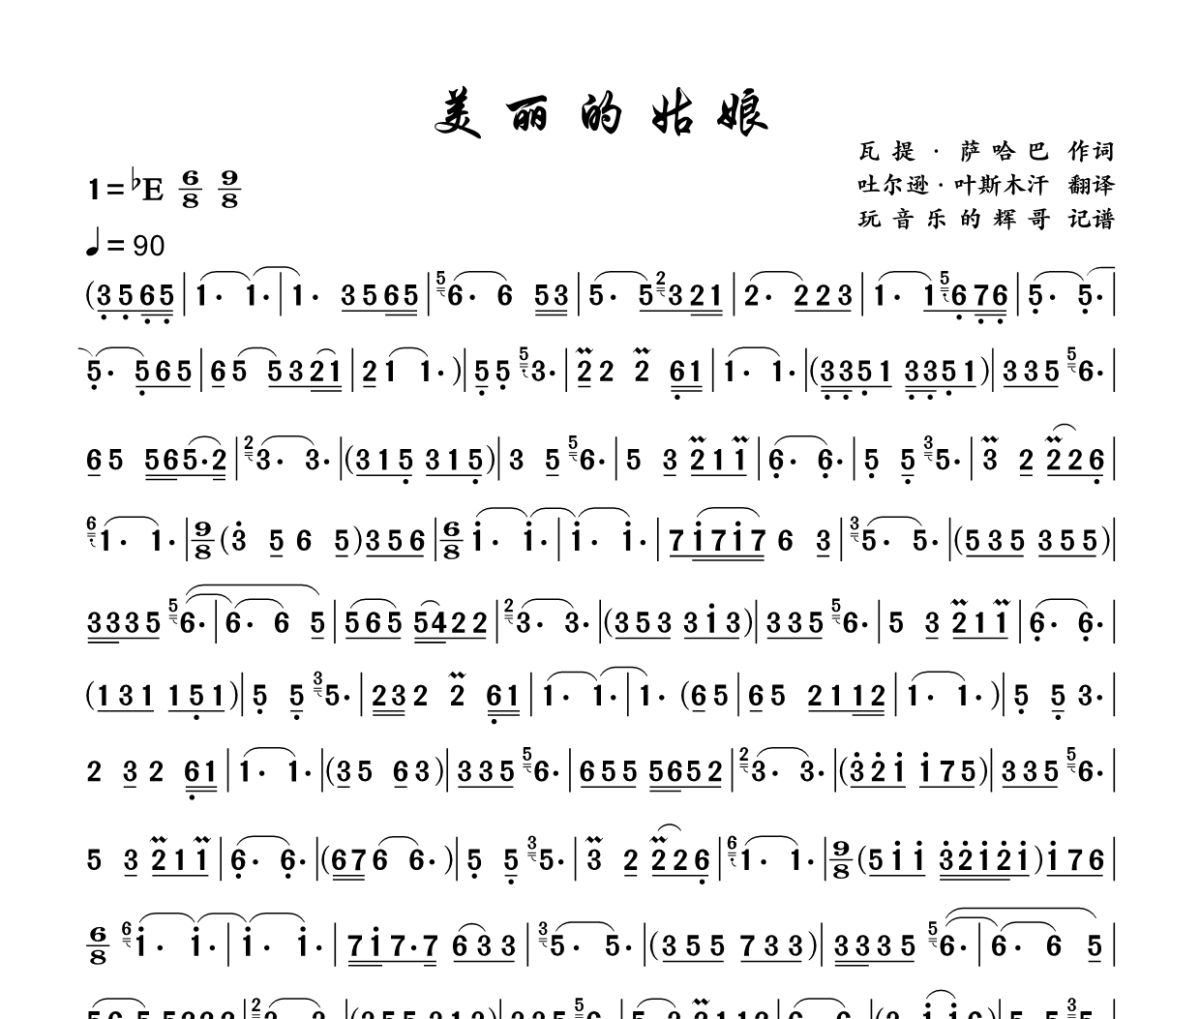 美丽的姑娘
瓦提·萨哈巴 作词
吐尔逊·叶斯木汗 翻译
玩音乐的辉哥 记谱
1=♭E 6/8 9/8
♩=90
(3565|1· 1·|1· 3565|⁵6· 6 53|5· 5²321|2· 223|1· 1⁵676|5· 5·|
5· 565|65 5321|21 1·)|55⁵3·|22 2 61|1· 1·|(3351 3351)|335⁵6·|
65 565·2|²3· 3·|(315 315)|3 5⁵6·|5 3 211|6· 6·|5 5³5·|3 2 226|
⁶1· 1·|9/8(3 5 6 5)356|6/8 1· 1·|1· 1·|71717 6 3|³5· 5·|(535 355)|
3335⁵6·|6· 6 5|565 5422|²3· 3·|(353 313)|335⁵6·|5 3 211|6· 6·|
(131 151)|5 5³5·|232 2 61|1· 1·|1· (65|65 2112|1· 1·)|5 5 3·|
2 32 61|1· 1·|(35 63)|335⁵6·|655 5652|²3· 3·|(321 175)|335⁵6·|
5 3 211|6· 6·|(676 6·)|5 5³5·|3 2 226|⁶1· 1·|9/8(511 32121)176|
6/8 ⁶1· 1·|1· 1·|717·7 633|³5· 5·|(355 733)|3335⁵6·|6· 6 5|